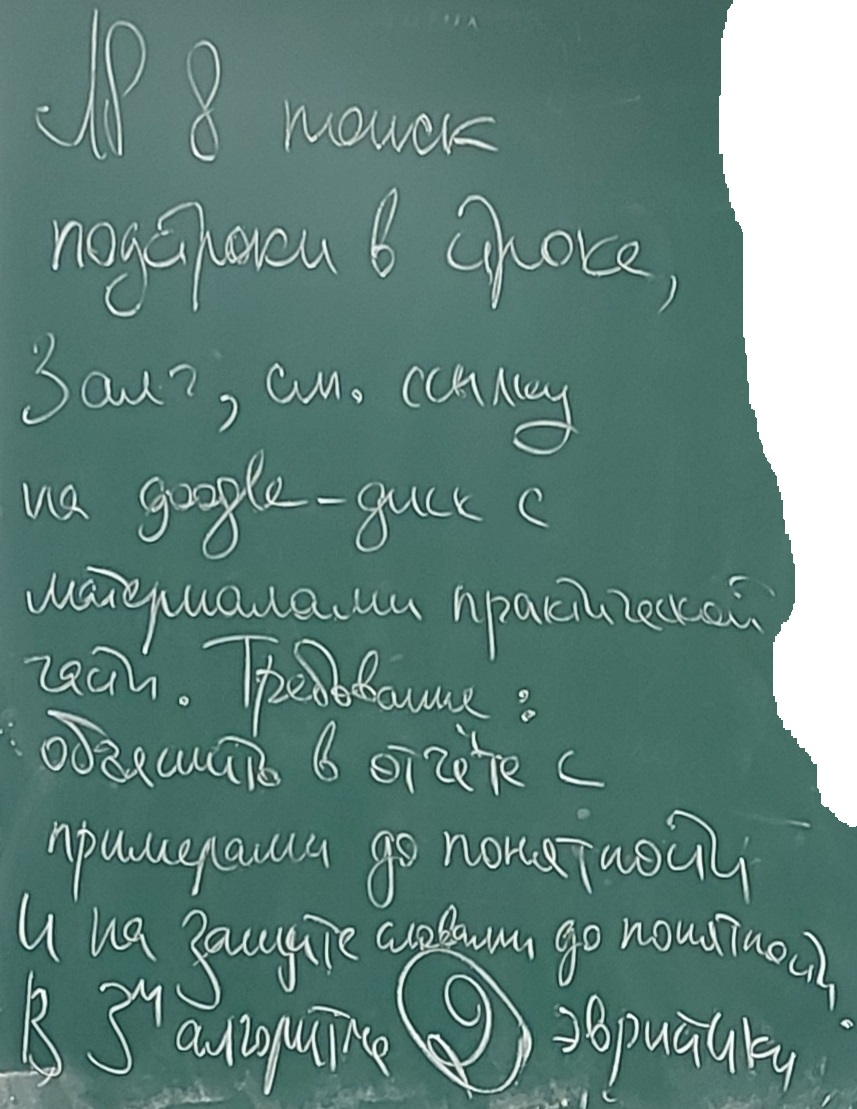 ЛР 8 поиск
подстроки в строке,
3 алг, см. ссылку
на google-диск с
материалами практической
части. Требование:
объяснить в отчёте с
примерами до понятности
и на защите словами до понятности.
В 3м алгоритме 2 эвристики